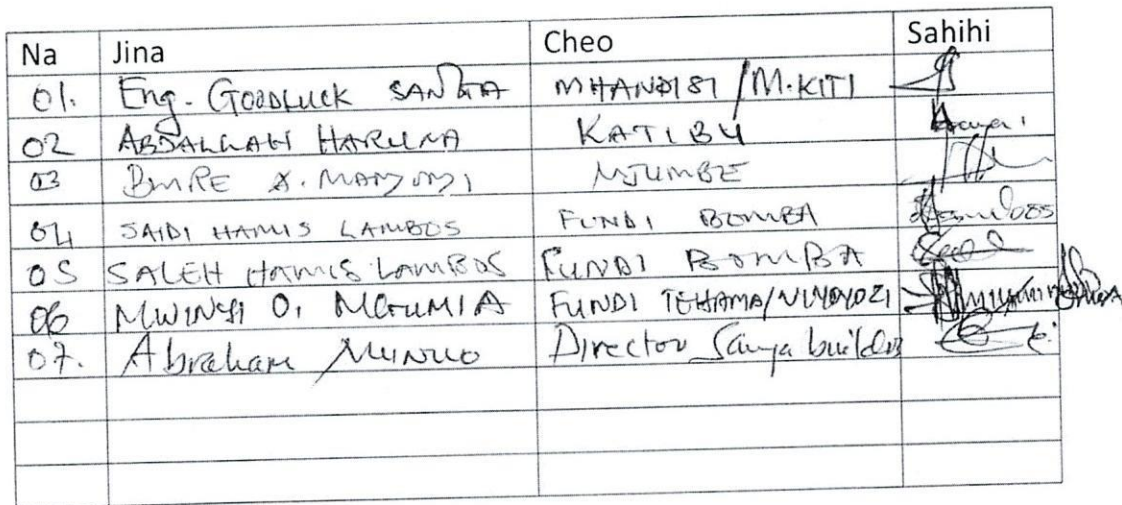 Na Jina Cheo Sahihi
01. Eng. GOODLUCK SANGA MHANDISI/M.KITI
02 ABDALLAH HARUNA KATIBU
03 MJUMBE
04 SAIDI HAMIS LAMBOS FUNDI BOMBA
05 SALEH HAMIS LAMBOS FUNDI BOMBA
06 MWINYI O. FUNDI TEHAMA/
07. Abraham Director Sanya builders